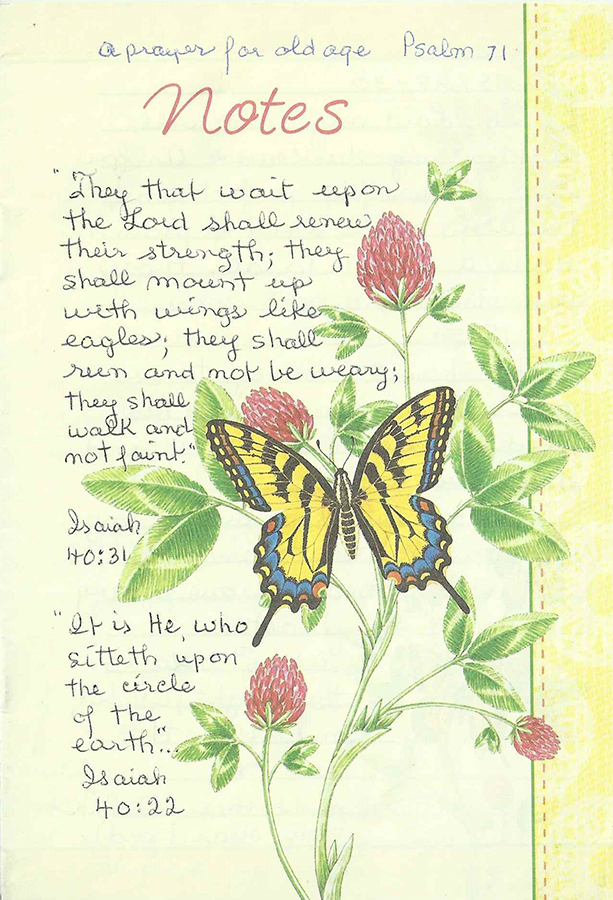 a prayer for old age Psalm 71
Notes
"They that wait upon
the Lord shall renew
their strength; they
shall mount up
with wings like
eagles; they shall
run and not be weary;
they shall
walk and
not faint."
Isaiah
40:31
"It is He, who
sitteth upon
the circle
of the
earth"...
Isaiah
40:22